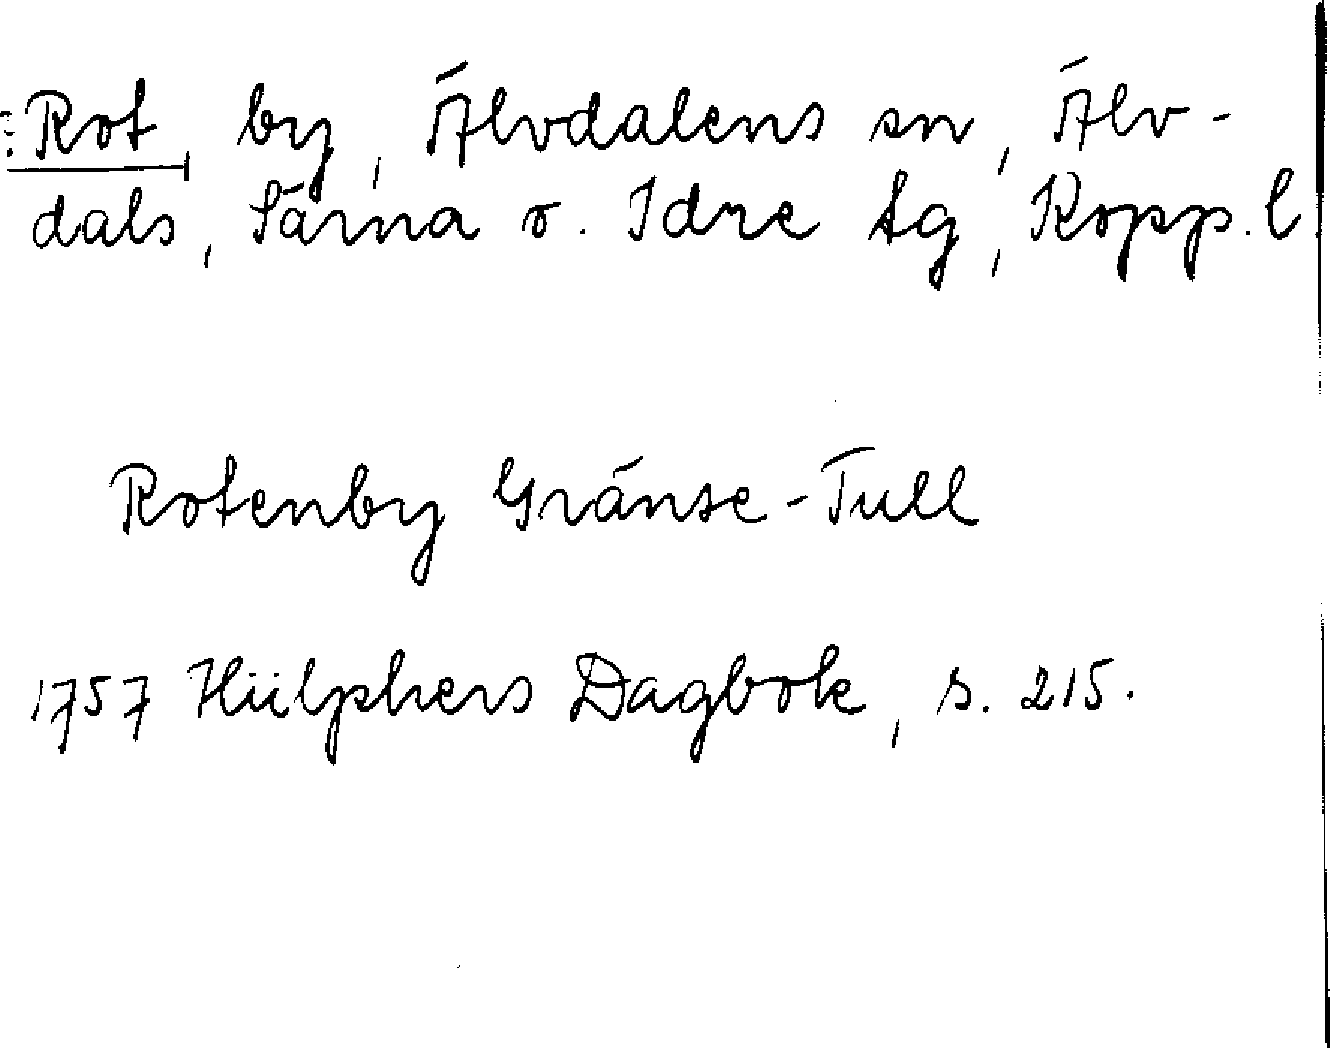 Rot, by, Älvdalens sn, Älv-
dals, Särna o. Idre tg, Kopp. l
Rotenby Gränse-Tull
1757 Hülphers Dagbok, s. 215.